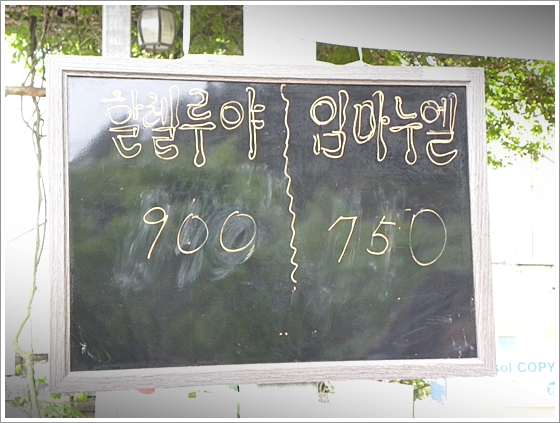 할렐루야 임마누엘
900 750
sol COPY